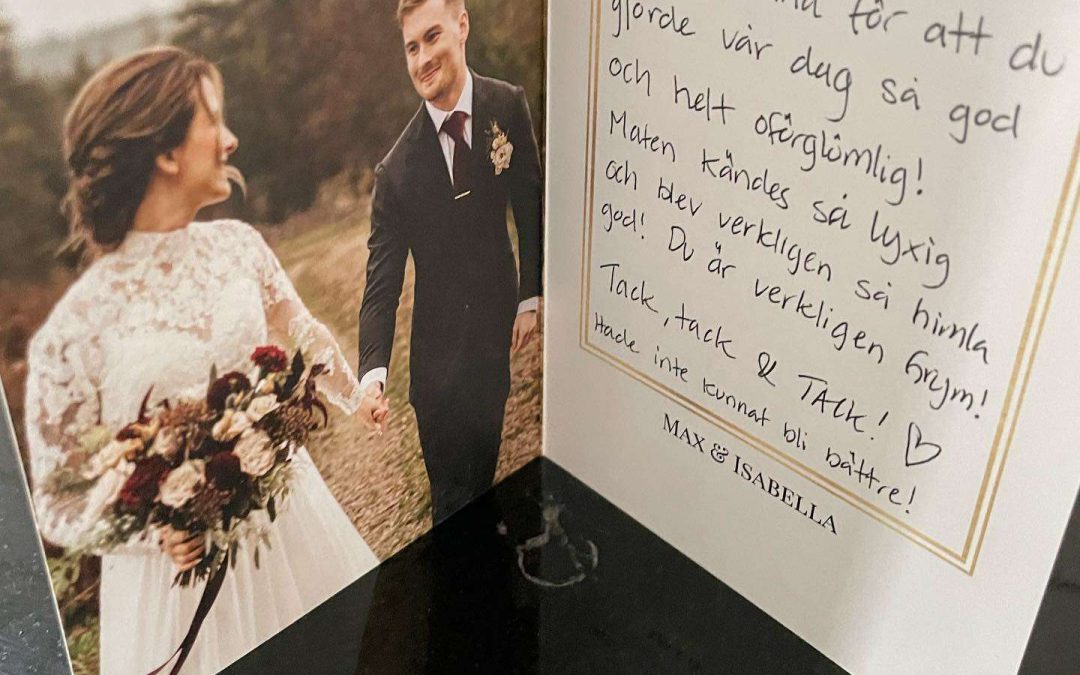 för att du
gjorde vår dag så god
och helt oförglömlig!
Maten kändes så lyxig
och blev verkligen så himla
god! Du är verkligen Grym!
Tack, tack & TACK! ♡
Hade inte kunnat bli bättre!
MAX & ISABELLA